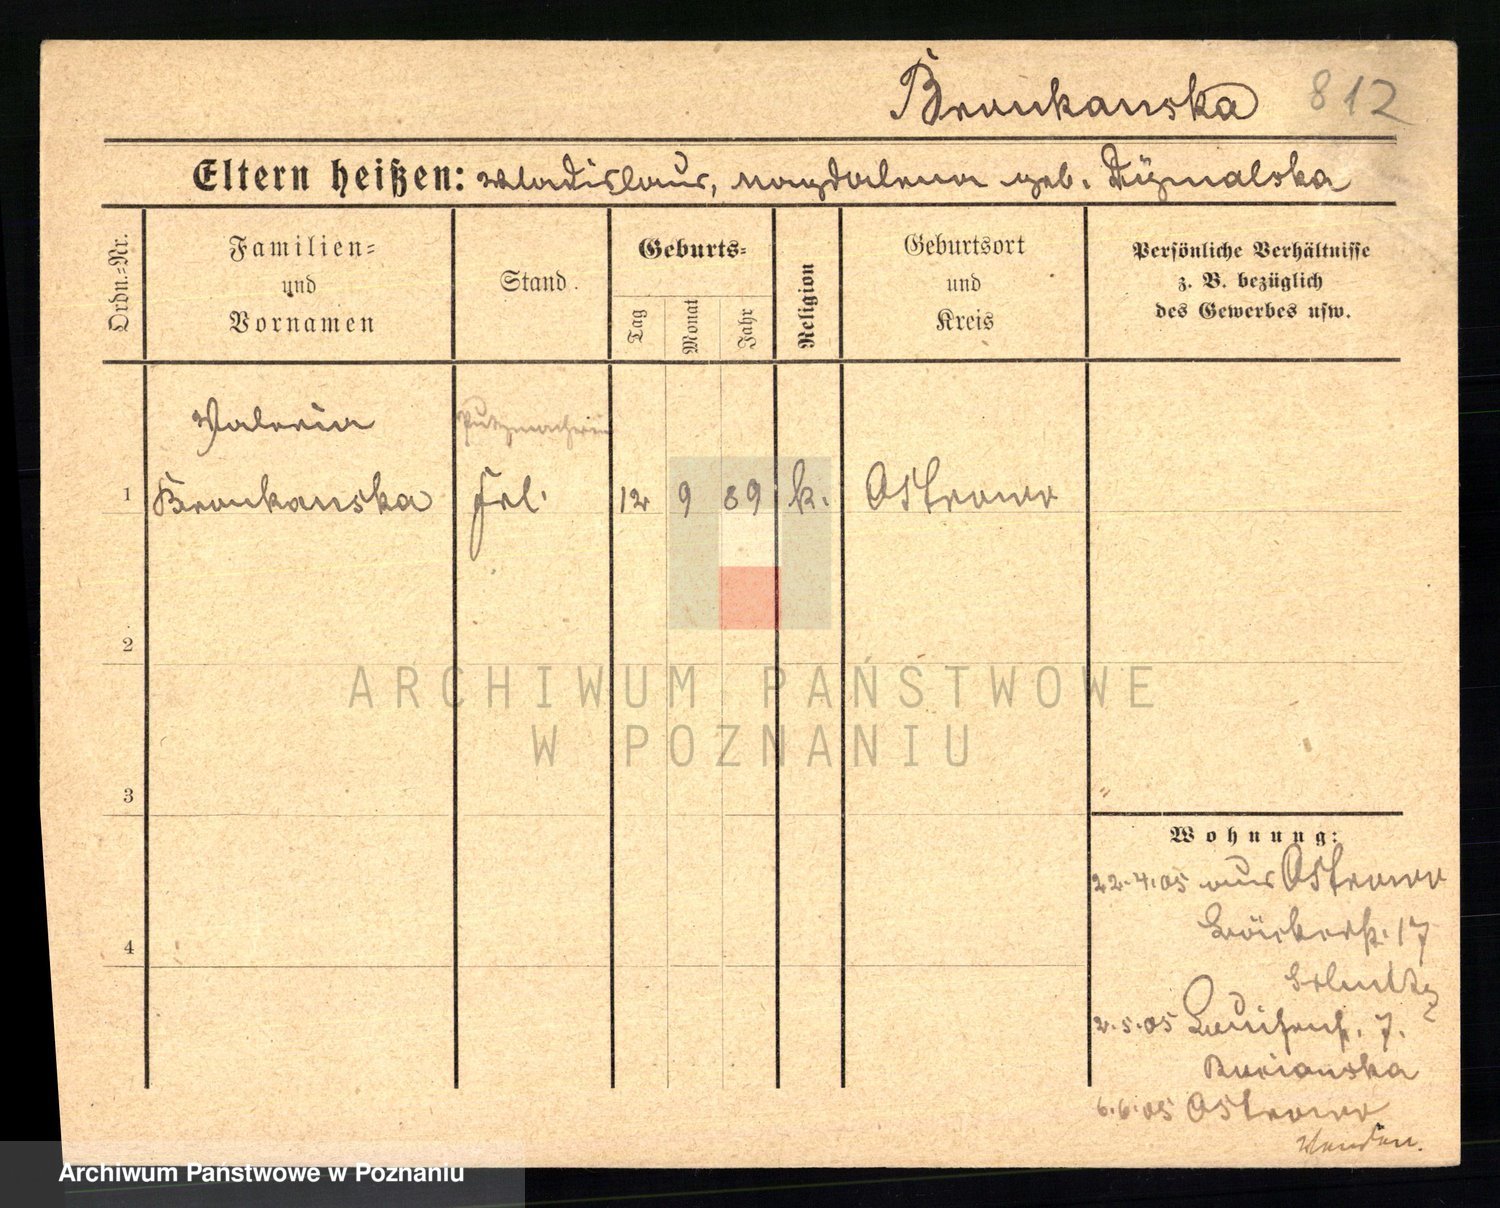 Bronkanska 812
Eltern heißen: Wladislaus, Magdalena geb. Dizmalska
Ordn.=Nr.
Familien=
und
Vornamen
Stand.
Geburts=
Tag
Monat
Jahr
Religion
Geburtsort
und
Kreis
Persönliche Verhältnisse
z. B. bezüglich
des Gewerbes usw.
Valeria
Putzmacherin
1 Bronkanska Frl. 12 9 89 k. Ostrowo
2
ARCHIWUM PAŃSTWOWE
W POZNANIU
3
Wohnung:
22.4.05 aus Ostrowo
Bäckerstr. 17
4
2.5.05 Luisenstr. 7.
6.6.05 Ostrowo
Wenden.
Archiwum Państwowe w Poznaniu